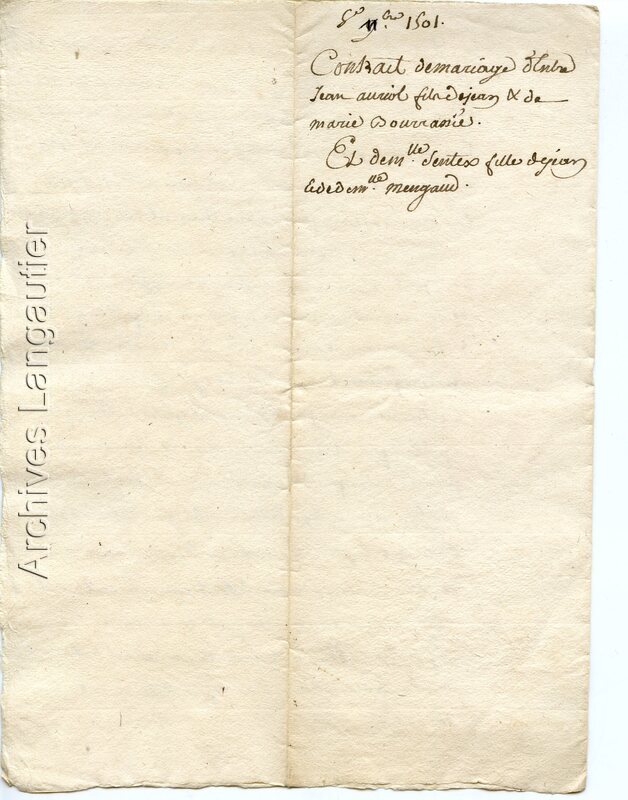 5e 9bre 1501.
Contrait demariage d'Entre
Jean auriol fils dejean & de
marie Bourrassié.
Et de mlle Sentex fille dejean
& de demlle mengaud.
Archives Langautier